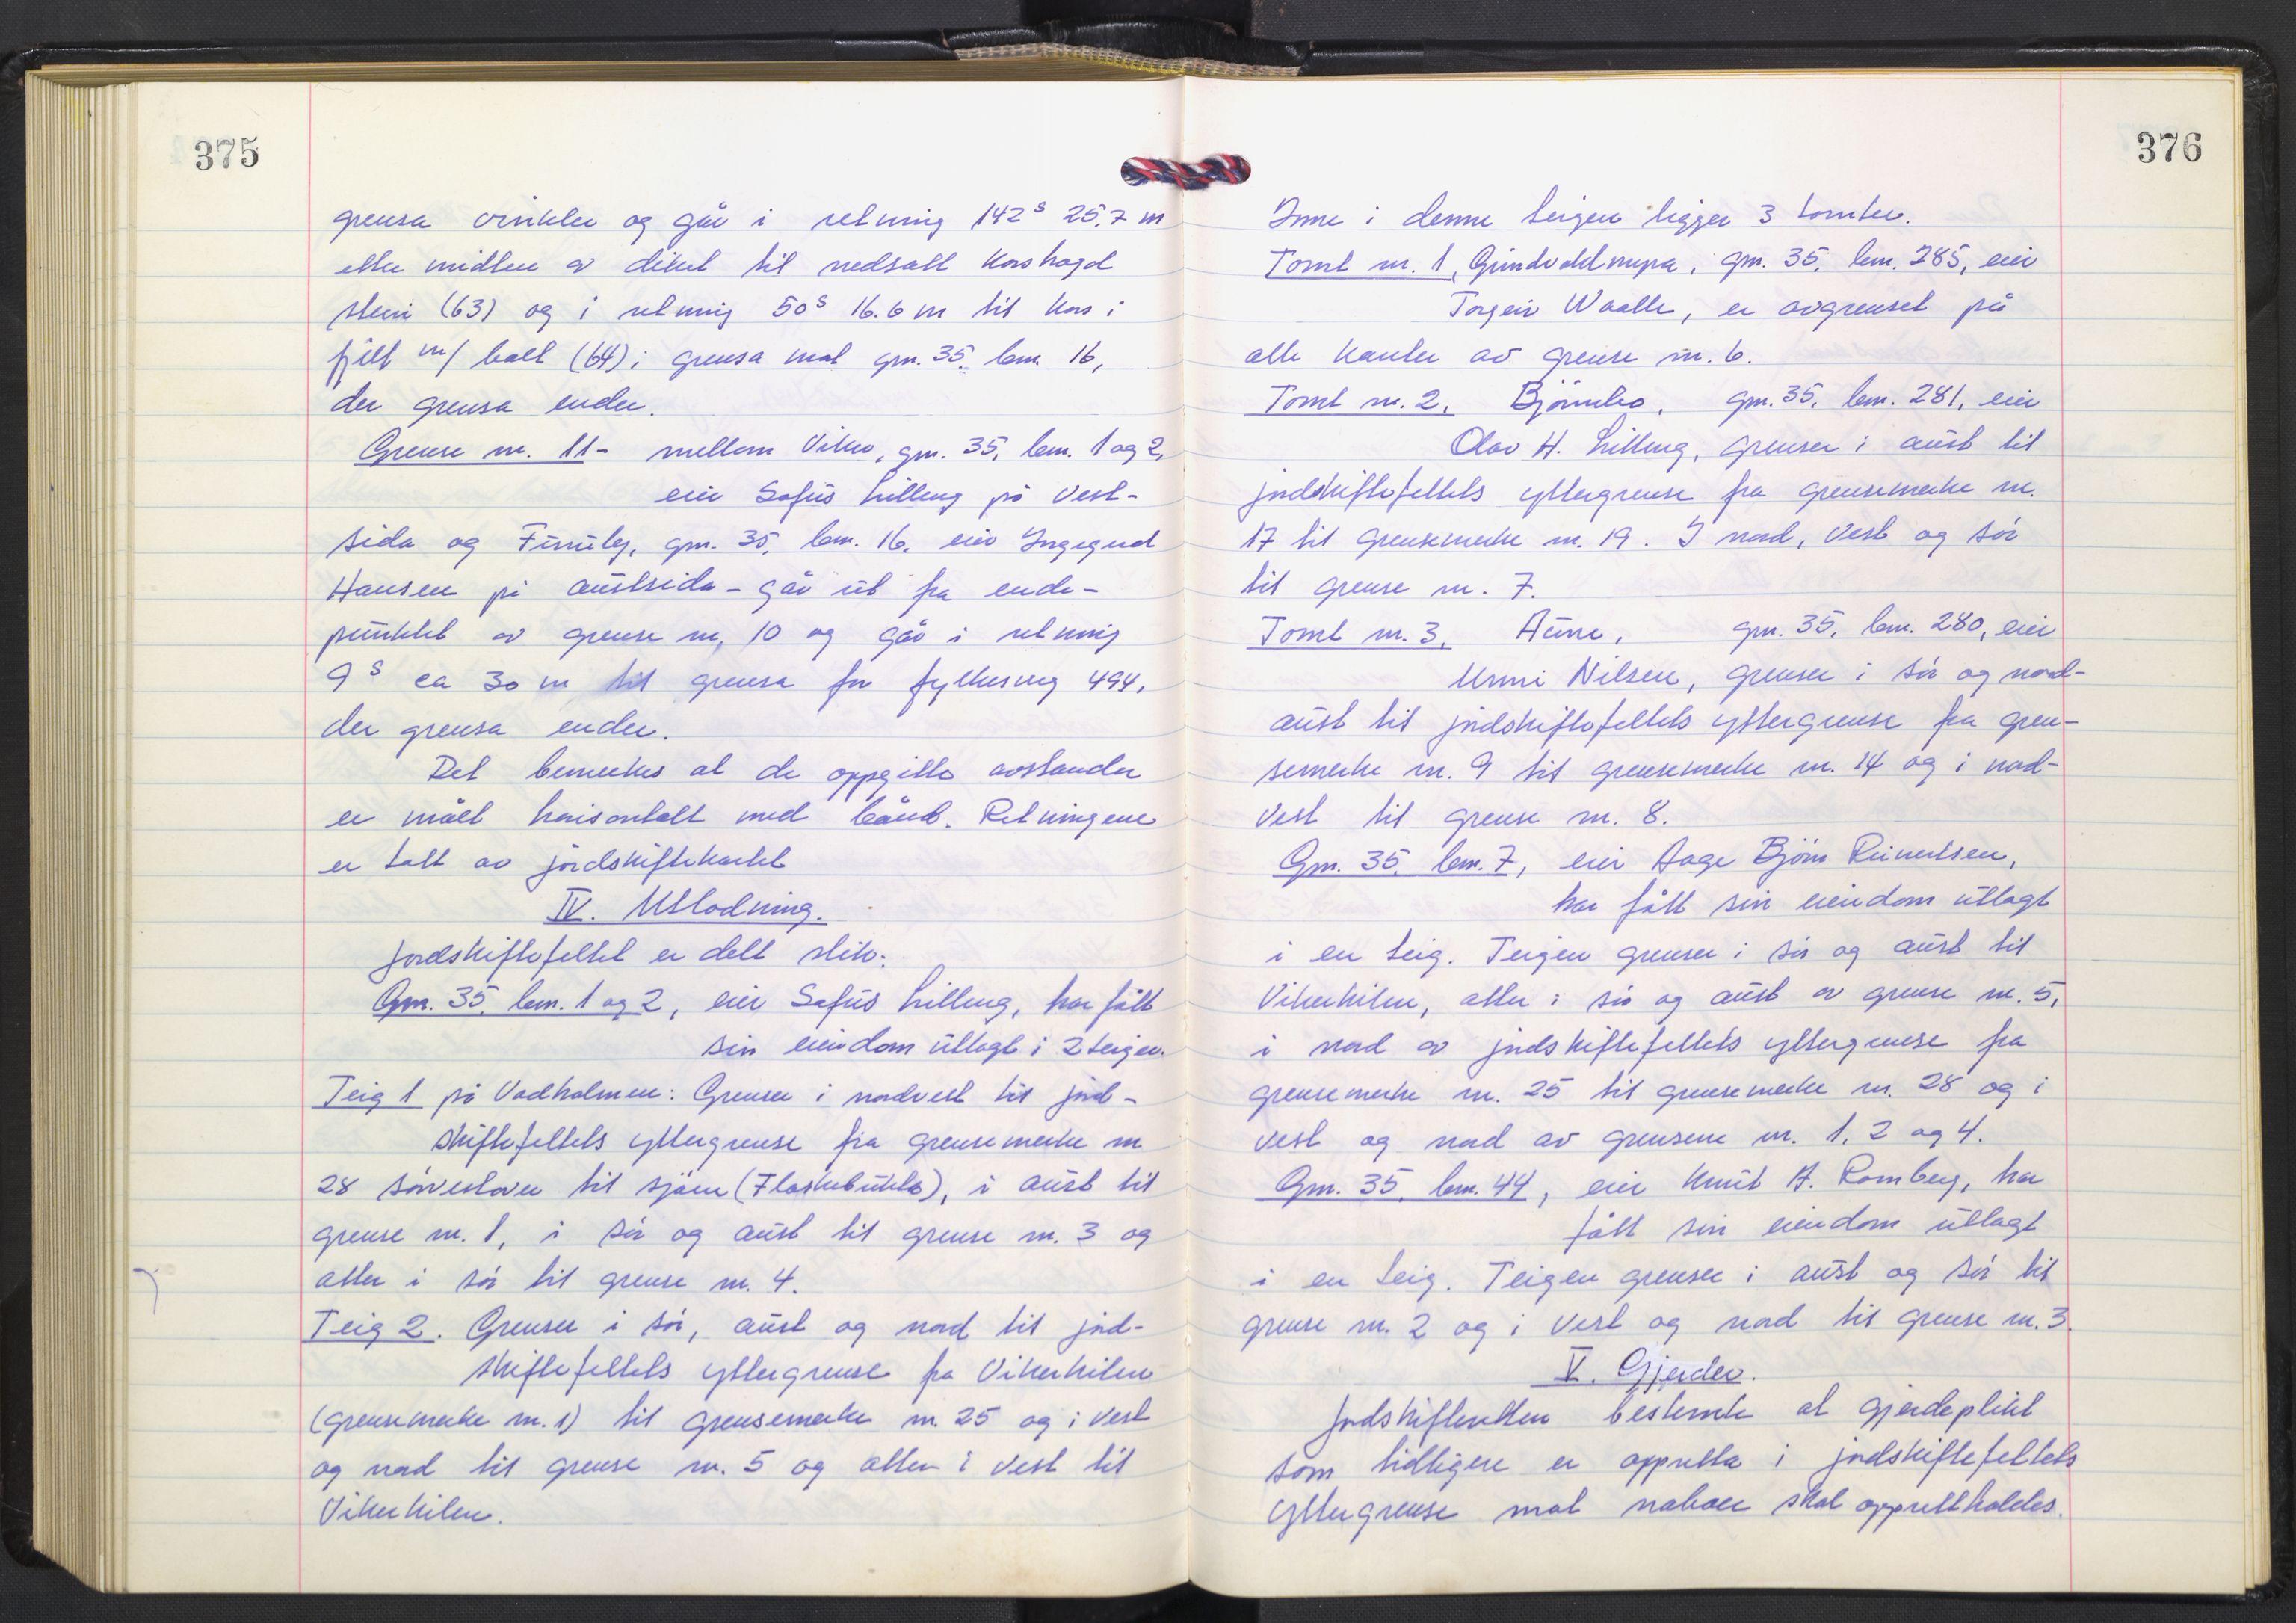 375
grensa vinkler og går i retning 142ᵍ 25,7 m
etter midten av diket til nedsatt korshogd
stein (63) og i retning 50ᵍ 16.6 m til kors i
fjell m/ bolt (64) i grensa mot gnr. 35, bnr. 16,
der grensa ender.
Grense nr. 11 - mellom Viker, gnr. 35, bnr. 1 og 2,
eier Sofus Lilleng på vest-
sida og Furuly, gnr. 35, bnr. 16, eier Ingegerd
Hansen på austsida - går ut fra ende-
punktet av grense nr. 10 og går i retning
9ᵍ ca 30 m til grensa for fylkesveg 494,
der grensa ender.
Det bemerkes at de oppgitte avstander
er målt horisontalt med bånd. Retningene
er tatt av jordskiftekartet
IV. Utlodning.
Jordskiftefeltet er delt slik:
Gnr. 35, bnr. 1 og 2, eier Sofus Lilleng, har fått
sin eiendom utlagt i 2 teiger.
Teig 1 på Vadholmen: Grenser i nordvest til jord-
skiftefeltets yttergrense fra grensemerke nr
28 sørvestover til sjøen (Flaskebukta), i aust til
grense nr. 1, i sør og aust til grense nr. 3 og
atter i sør til grense nr. 4.
Teig 2. Grenser i sør, aust og nord til jord-
skiftefeltets yttergrense fra Vikerkilen
(grensemerke nr. 1) til grensemerke nr. 25 og i vest
og nord til grense nr. 5 og atter i vest til
Vikerkilen.
376
Inne i denne teigen ligger 3 tomter.
Tomt nr. 1, gnr. 35, bnr. 285, eier
Torgeir Waalle, er avgrenset på
alle kanter av grense nr. 6.
Tomt nr. 2, Bjørnebo, gnr. 35, bnr. 281, eier
Olav H. Lilleng, grenser i aust til
jordskiftefeltets yttergrense fra grensemerke nr.
17 til grensemerke nr. 19. I nord, vest og sør
til grense nr. 7.
Tomt nr. 3, Aune, gnr. 35, bnr. 280, eier
Unni Nilsen, grenser i sør og nord-
aust til jordskiftefeltets yttergrense fra gren-
semerke nr. 9 til grensemerke nr. 14 og i nord-
vest til grense nr. 8.
Gnr. 35, bnr. 7, eier Aage Bjørn Reinertsen,
har fått sin eiendom utlagt
i en teig. Teigen grenser i sør og aust til
Vikerkilen, atter i sør og aust av grense nr. 5,
i nord av jordskiftefeltets yttergrense fra
grensemerke nr. 25 til grensemerke nr. 28 og i
vest og nord av grensene nr. 1, 2 og 4.
Gnr. 35, bnr. 44, eier Knut A. Romberg, har
fått sin eiendom utlagt
i en teig. Teigen grenser i aust og sør til
grense nr. 2 og i vest og nord til grense nr. 3.
V. Gjerder.
Jordskifteretten bestemte at gjerdeplikt
som tidligere er oppretta i jordskiftefeltets
yttergrense mot naboer skal opprettholdes.